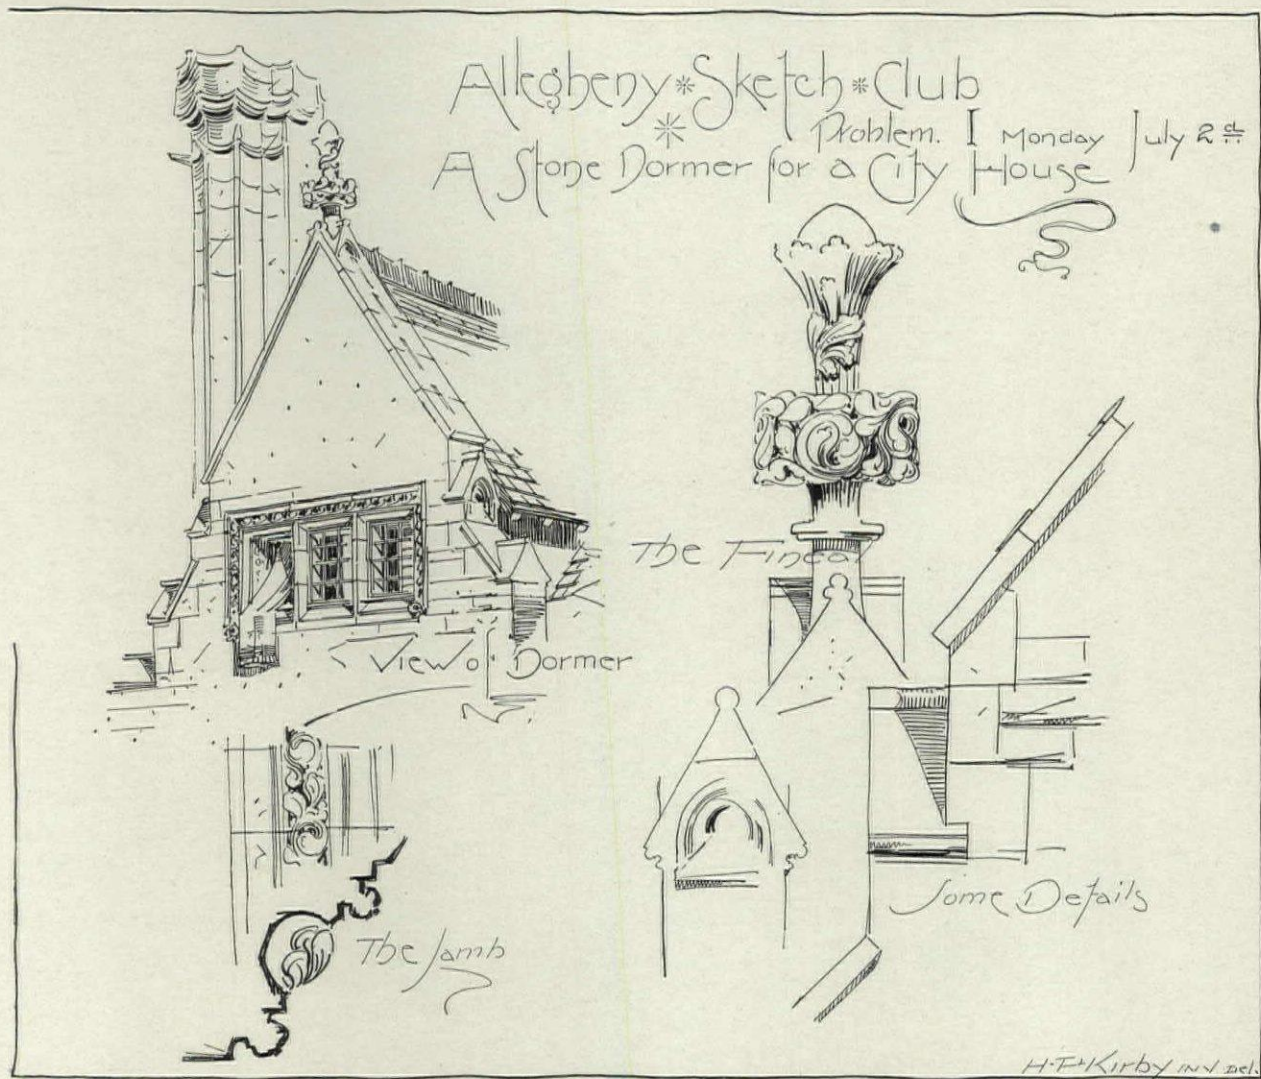 Allegheny * Sketch * Club
Problem. I Monday July 2d
A Stone Dormer for a City House
The Fineal
View of Dormer
Some Details
The Jamb
H. F. Kirby INV Del.